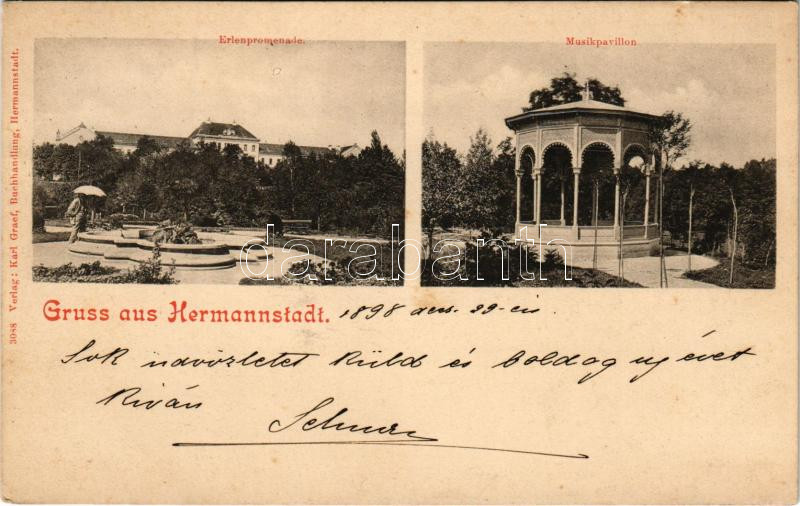 Erlenpromenade.
Musikpavillon
3088 Verlag: Karl Graef, Buchhandlung, Hermannstadt.
darabanth
Gruss aus Hermannstadt. 1898 29-én
Sok üdvözletet küld és boldog uj évet
kiván